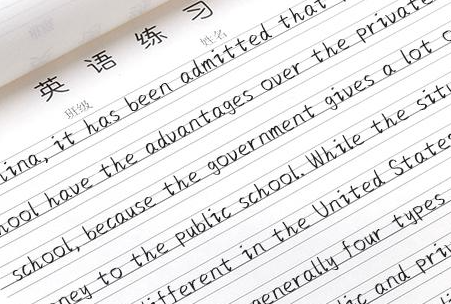 英语练习
班级 姓名
it has been admitted that
have the advantages over the private
school, because the government gives a lot
to the public school. While the
different in the United States
generally four types
and